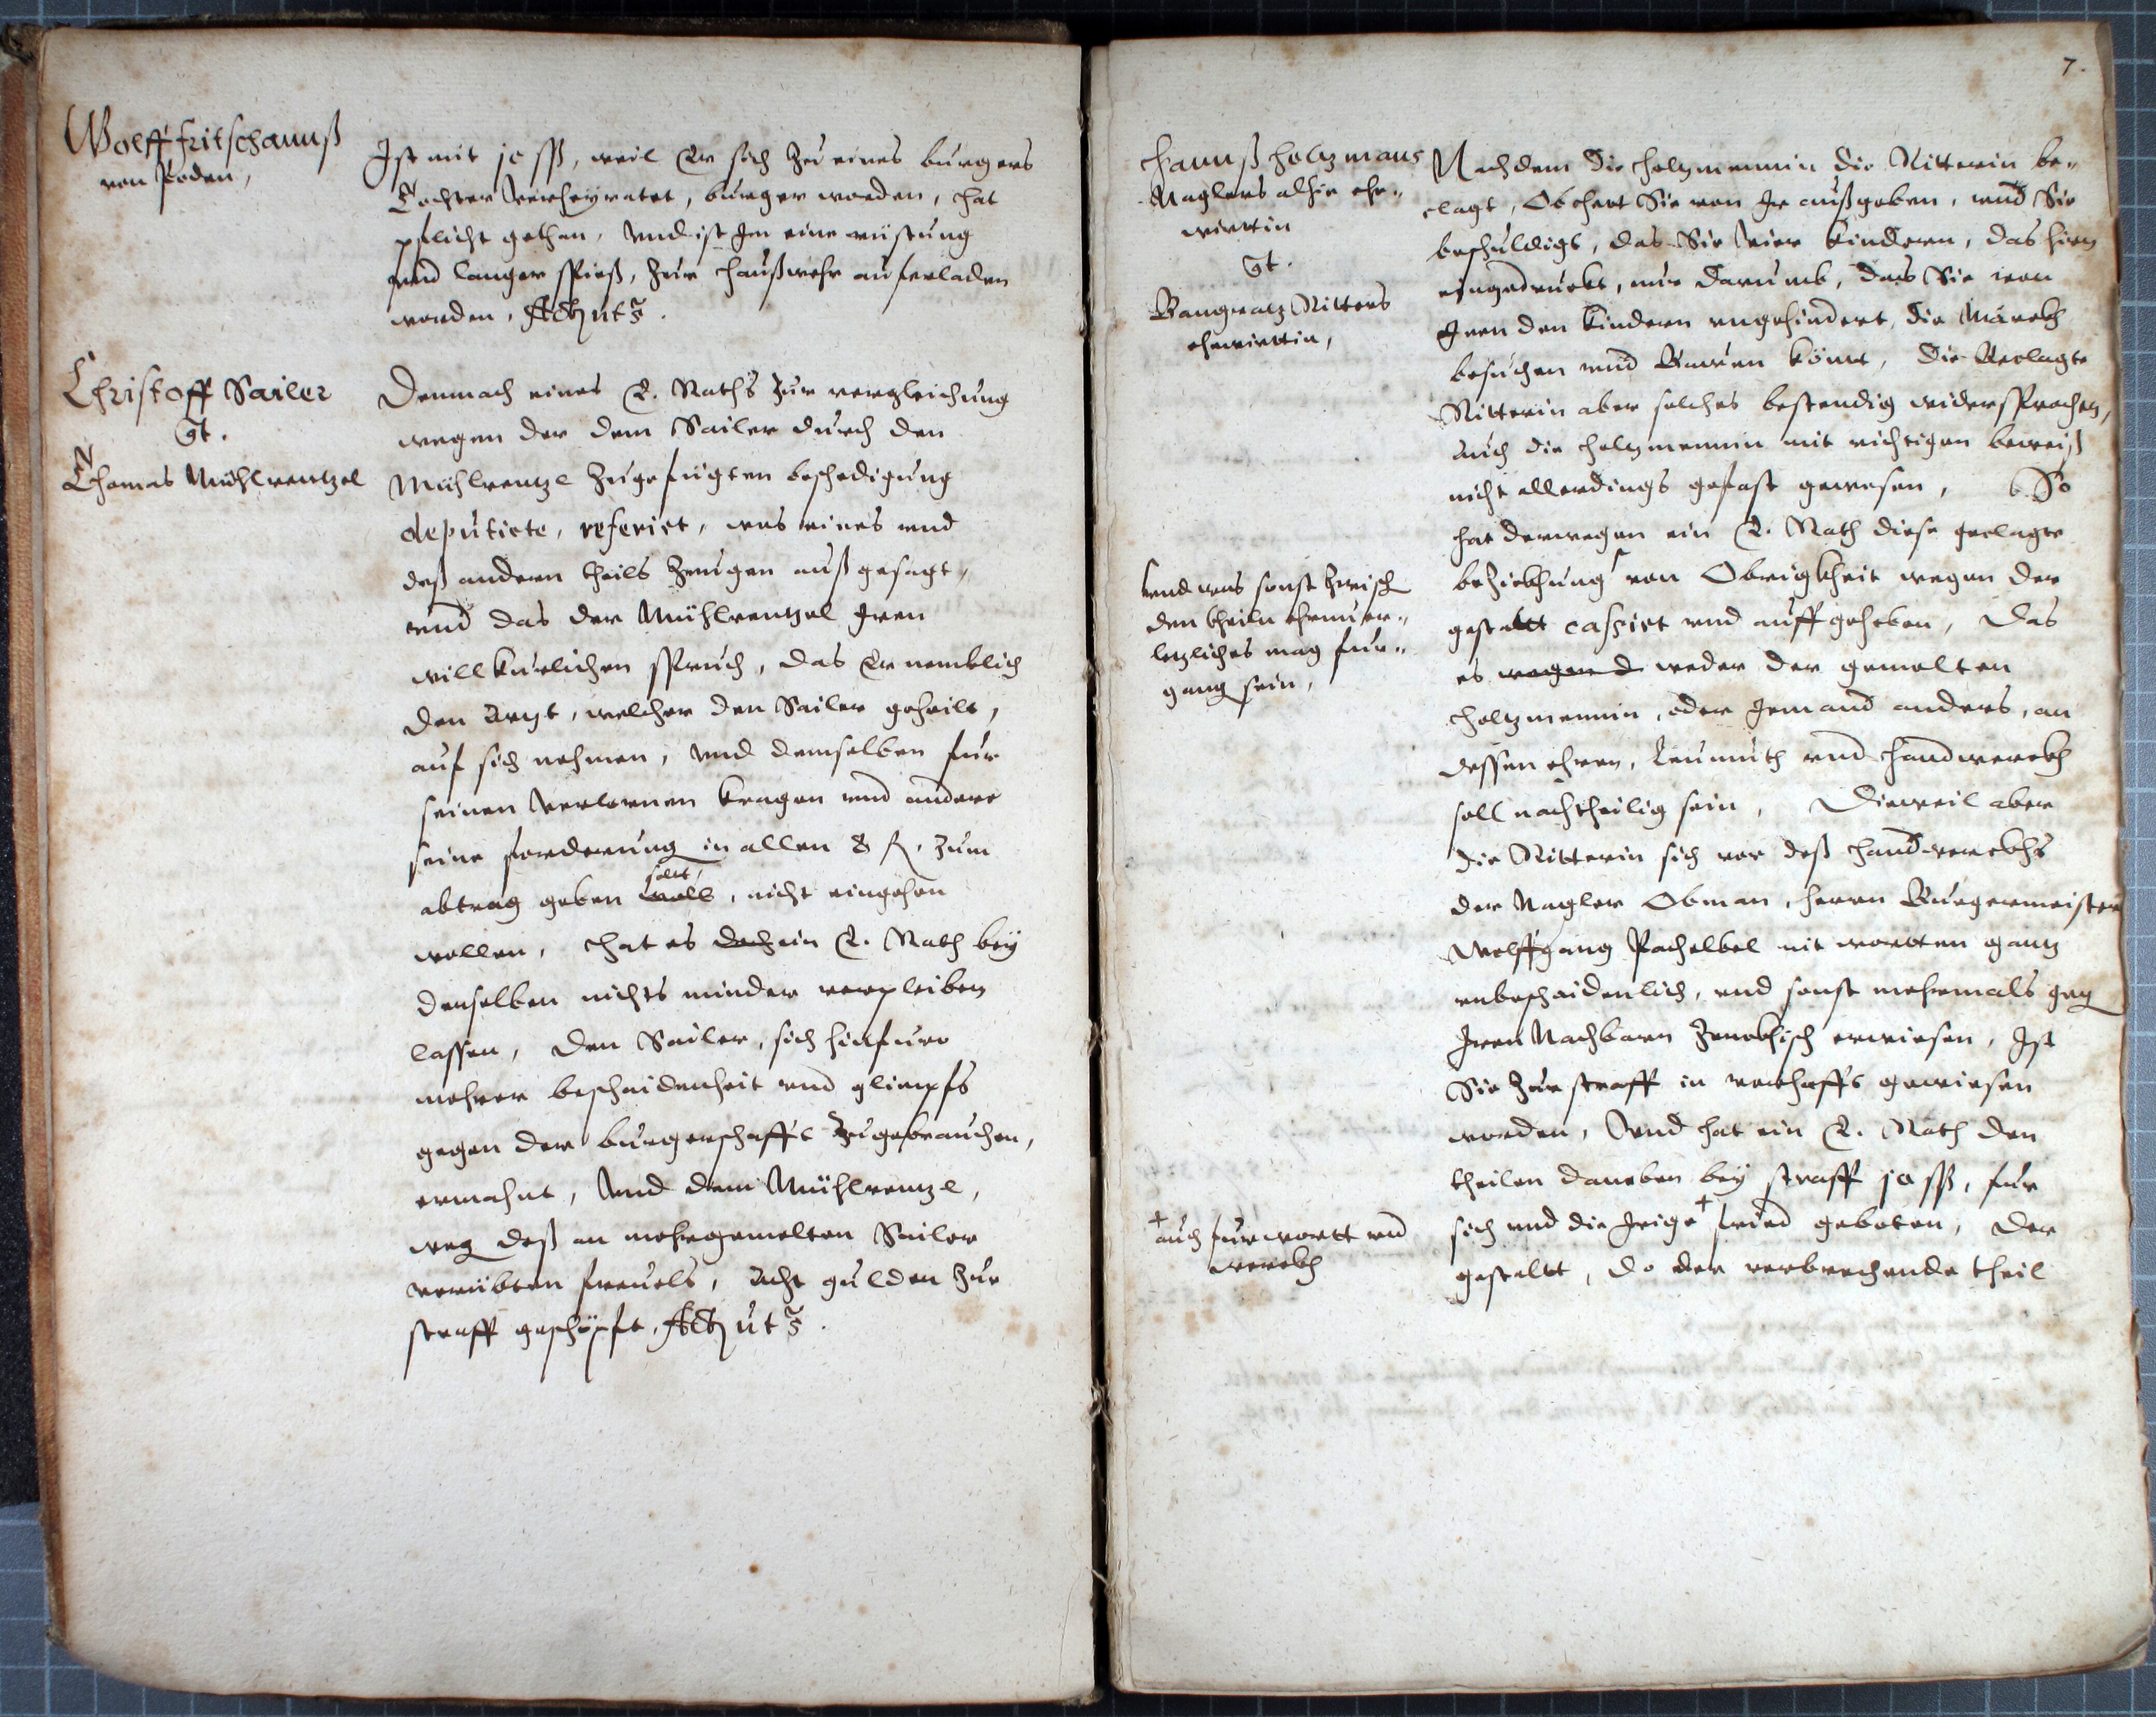 Wolff Fritschhannß
von Roden,
Ist mit 10 ßß, weil Er sich zu eines burgers
Tochter verheyratet, burger worden, hat
pflicht gethan, vnd ist Im eine rüstung
vnd langer spieß, zur haußwehr auferladen
worden, Act ut s.
Christoff Sailer
Ct.
Thomas Mühlwentzel
Demnach eines E. Raths zur vergleichung
wegen der dem Sailer durch den
Mühlwentzl zugefügten beschedigung
deputirte, referirt, was eines vnd
deß andern theils Zeugen außgesagt,
vnd das der Mühlwentzel Iren
willkürlichen spruch, das Er nemblich
den Artzt, welcher den Sailer geheilt,
auf sich nehmen, vnd demselben für
seinen verlornen kragen vnd andere
seine forderung in allen 8 fl. zum
solt,
abtrag geben woll, nicht eingehen
wollen, hat es doch ein E. Rath bey
denselben nichts minder verpleiben
lassen, den Sailer, sich hinfuro
mehrer beschaidenheit vnd glimpfs
gegen der burgerschafft zugebrauchen,
ermahnt, vnd dem Mühlwentzl,
weg deß an mehrgemelten Sailer
verübten freuels, Acht gulden zur
straff geschöpft, Act ut s.
7.
Hannß Holtzmans
Naglers alhie ehe-
wirttin
Ct.
Pangratz Ritters
ehewirttin,
Nachdem die Holtzmennin die Ritterin be-
clagt, Ob hett Sie von Ir außgeben, vnd Sie
beschuldigt, das Sie vier kindern, das hirn
eingedruckt, nur darumb, das Sie von
Iren den kindern vngehindert, die Märckh
besuchen vnd bauen könnt, die Beclagte
Ritterin aber solches bestendig widersprochen,
Auch die Holtzmennin mit richtigen beweiß
nicht allerdings gefast gewesen, So
hat derwegen ein E. Rath diese geclagte
beziehung von Obrigkheit wegen der
vnd was sonst zwisch
den theiln ehrnuer-
letzliches mag fur-
gang sein,
gestalt cassirt vnd auffgehoben, das
es wegen d weder der gemelten
Holtzmennin, oder Jemand anders, an
dessen ehren, Leumuth vnd Handwerckh
soll nachtheilig sein, Dieweil aber
die Ritterin sich vor deß Handwerckhs
der Nagler Obman, herrn Burgermeister
Wolffgang Pachelbel mit wortten gantz
vnbeschaidenlich, vnd sonst mehrmals geg
Iren Nachbarn zenckhisch erwiesen, Ist
Sie zur straff in verhafft gewiesen
worden, vnd hat ein E. Rath den
theilen daneben bey straff 10 ßß, fur
sich vnd die Irige + frid geboten, der
+ auch fur wortt vnd
werckh
gestaltt, do der verbrechende theil